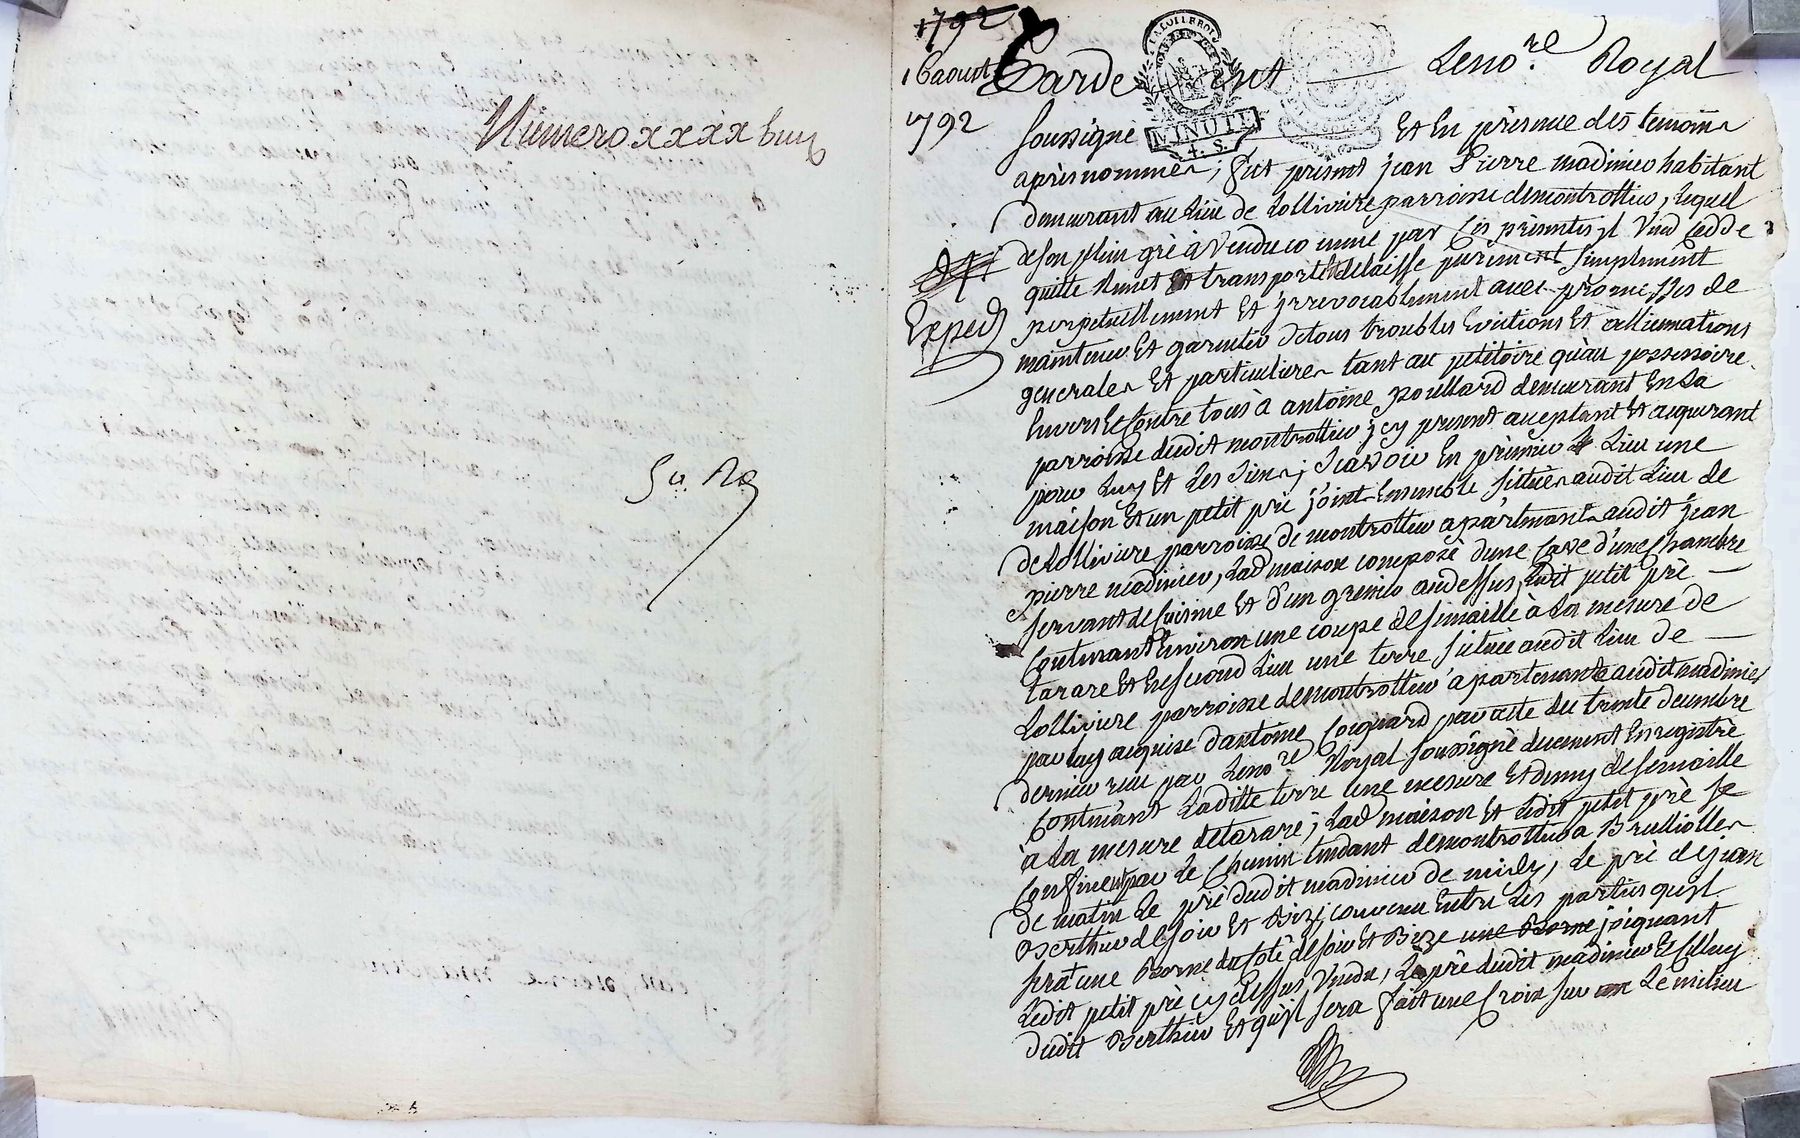 Numero xxxx huit
Su. Ne
1792
16 aoust
1792
Exped
Pardevant Le no.re Royal
LA COLLEROY
MINUTE
4. S.
soussigné Et En présence des temoins
après nommés, fut present jean Pierre madinier habitant
demeurant au Lieu de Lollivière parroisse de montrottier, Lequel
de son plein gré à vendu comme par Ces présentes il Vend Cedde
quitte Remet Et transporte Et delaisse purement simplement
perpetuellement Et jrrevocablement avec promesses de
maintenir Et garentir de tous troubles Evictions Et alliennations
generales Et particulieres tant au petitoire qu'au possessoire
Envers Et Contre tous à antoine poullard demeurant En La
parroisse dudit montrottier jcy present acceptant Et acquerant
pour Luy Et Les siens; scavoir En prémier Lieu une
maison Et un petit pré joint Ensemble sittués audit Lieu de
de Lollivière parroisse de montrottier apartenants audit jean
pierre madinier, Lad maison composé d'une Cave d'une Chambre
servant de Cuisine Et d'un grenier au dessus, Ledit petit pré
Contenant Environ une coupe de semaille à La mesure de
tarare Et En second Lieu une terre située audit Lieu de
Lollivière parroisse de montrottier apartenante audit madinier
par luy acquise d'antoine Coquard par acte du trente decembre
dernier reçu par Le no.re Royal soussigné duement Enregistré
Contenant Laditte terre une mesure Et demy de semaille
à La mesure de tarare; Lad maison Et Ledit petit pré se
Confinent par Le Chemin tendant de montrottier a Brullioles
de matin Le pré dudit madinier de midy, Le pré de jean
Berthier de soir Et Bize; convenu Entre Les parties qu'jl
sera une Borne du Coté de soir Et Bize une Borne joignant
Ledit petit pré cy dessus Vendu, Le pré dudit madinier Et Celluy
dudit Berthier Et qu'jl sera fait une Croix sur Le milieu